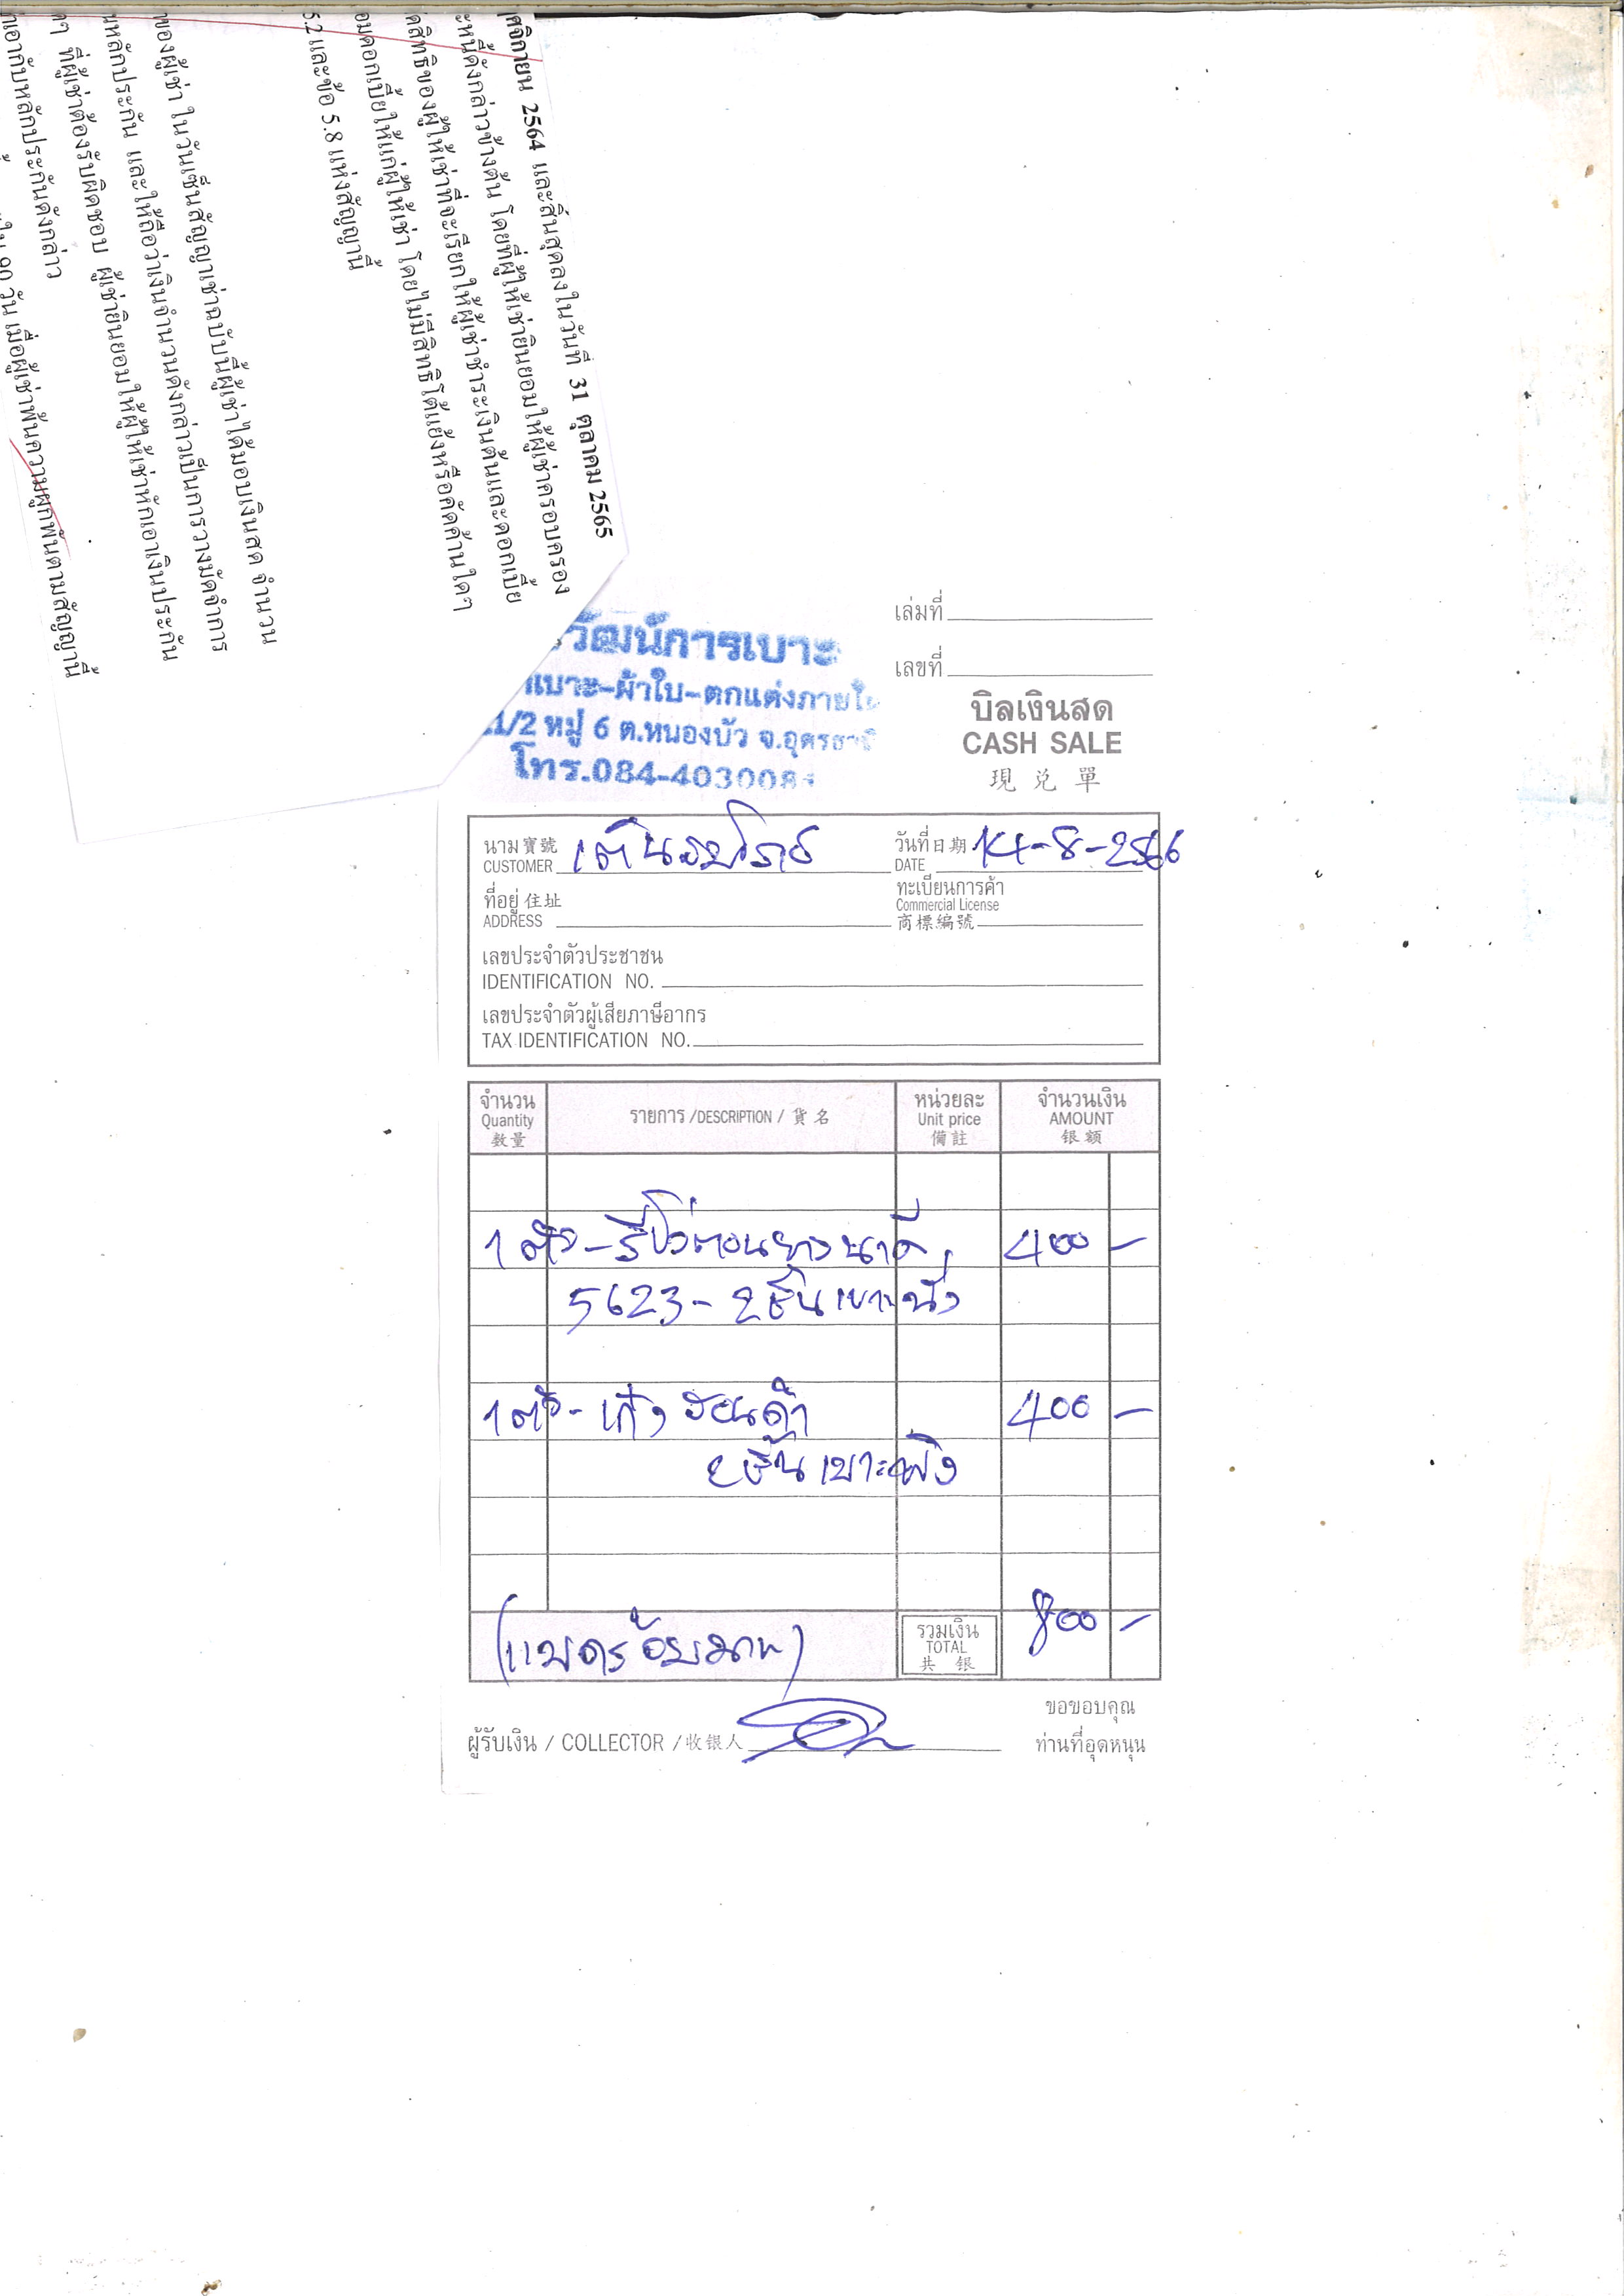 ศจิกายน 2564 และสิ้นสุดลงในวันที่ 31 ตุลาคม 2565
ะหนี้ดังกล่าวข้างต้น โดยที่ผู้ให้เช่ายินยอมให้ผู้เช่าครอบครอง
ดสิทธิของผู้ให้เช่าที่จะเรียกให้ผู้เช่าชำระเงินต้นและดอกเบี้ย
อมดอกเบี้ยให้แก่ผู้ให้เช่า โดยไม่มีสิทธิโต้แย้งหรือคัดค้านใดๆ
5.2 และข้อ 5.8 แห่งสัญญานี้
ของผู้เช่า ในวันเซ็นสัญญาเช่าฉบับนี้ผู้เช่าได้มอบเงินสด จำนวน
หลักประกัน และให้ถือว่าเงินจำนวนดังกล่าวเป็นการวางมัดจำการ
ดๆ ที่ผู้เช่าต้องรับผิดชอบ ผู้เช่ายินยอมให้ผู้ให้เช่าหักเอาเงินประกัน
เอากับหลักประกันดังกล่าว
90 วัน เมื่อผู้เช่าพ้นความผูกพันตามสัญญานี้
วัฒน์การเบาะ
เบาะ-ผ้าใบ-ตกแต่งภายใน
1/2 หมู่ 6 ต.หนองบัว จ.อุดรธานี
โทร.084-403008
เล่มที่
เลขที่
บิลเงินสด
CASH SALE
現兌單
นาม寶號
CUSTOMER
วันที่日期 14-8-2566
DATE
ที่อยู่住址
ADDRESS
ทะเบียนการค้า
Commercial License
商標編號
เลขประจำตัวประชาชน
IDENTIFICATION NO.
เลขประจำตัวผู้เสียภาษีอากร
TAX IDENTIFICATION NO.
จำนวน
Quantity
數量
รายการ /DESCRIPTION / 貨名
หน่วยละ
Unit price
備註
จำนวนเงิน
AMOUNT
银额
1 ตัว - 400 -
5623 - 2 ชิ้น เบาะนั่ง
1 ตัว - เก๋ง ฮอนด้า 400 -
2 ชิ้น เบาะพิง
(แปดร้อยบาท)
รวมเงิน
TOTAL
共银
800 -
ผู้รับเงิน / COLLECTOR / 收银人
ขอขอบคุณ
ท่านที่อุดหนุน